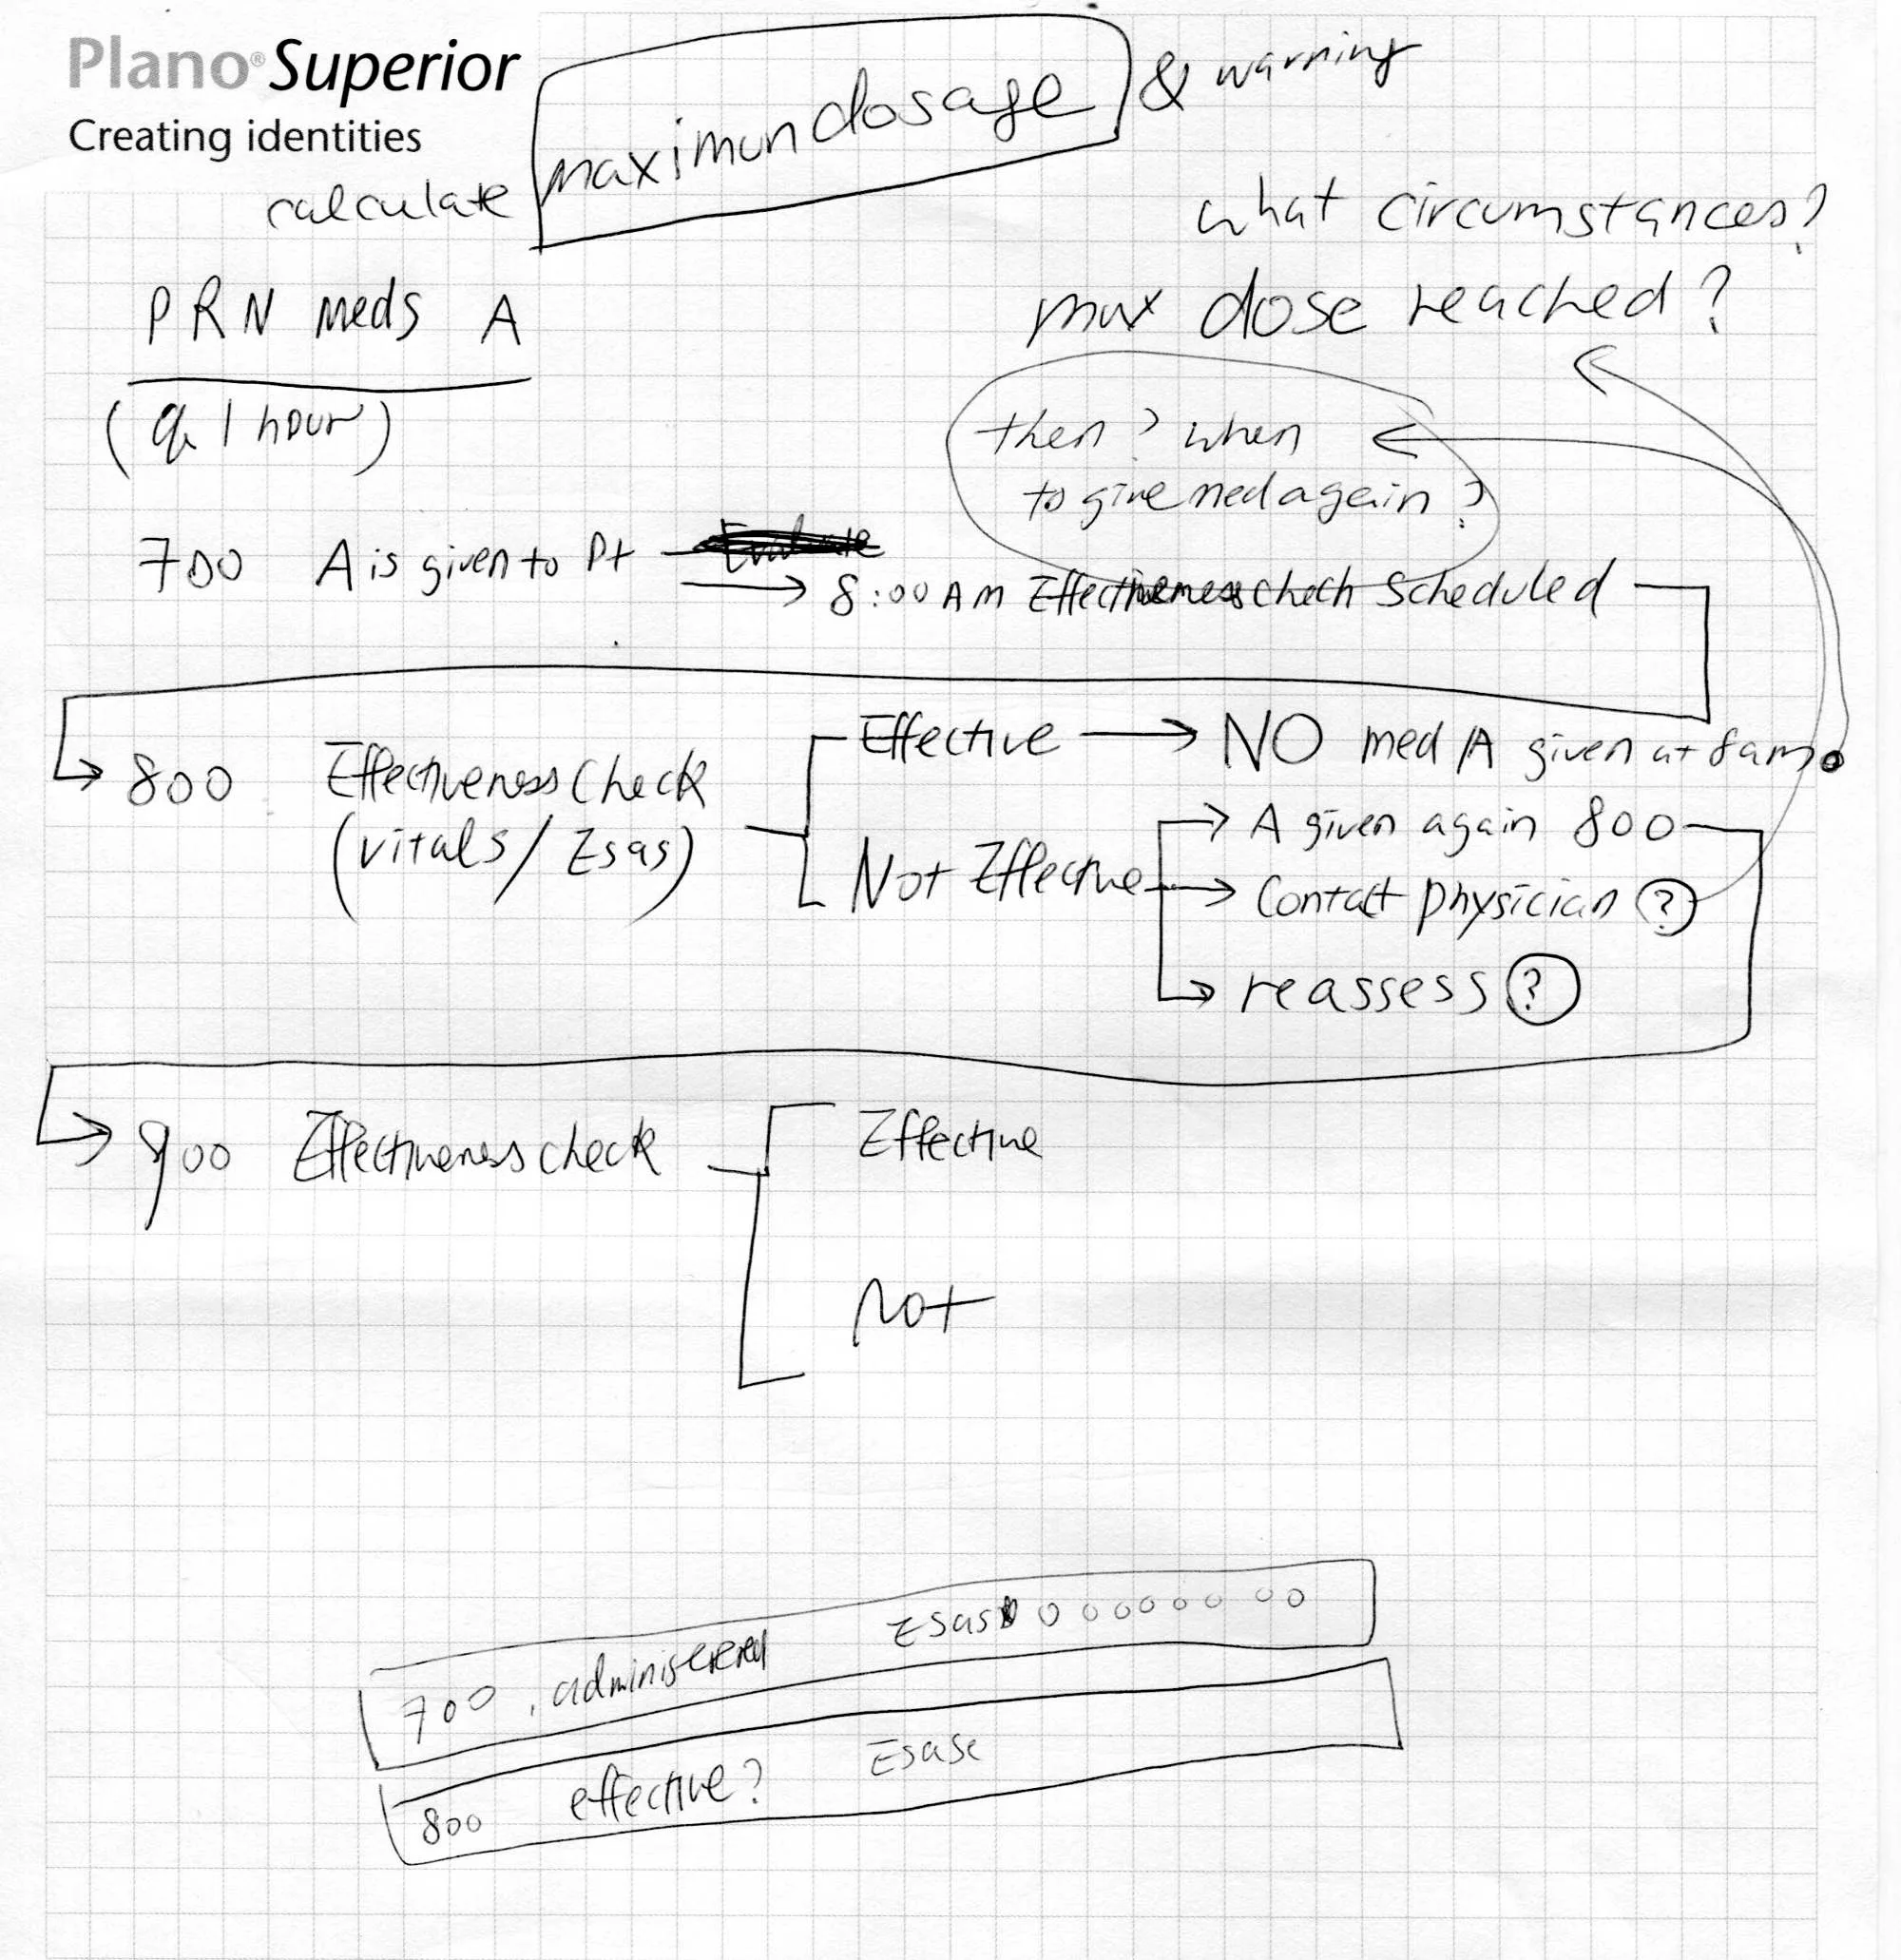 Plano® Superior
Creating identities
calculate maximun dosage & warning
what circumstances?
PRN meds A
max dose reached?
(q 1 hour)
then? when
to give med again?
700 A is given to Pt
→ 8:00 AM Effectiveness check Scheduled
800 Effectiveness Check
(vitals / Esas)
Effective → NO med A given at 8am
Not Effective
→ A given again 800
→ Contact physician ?
→ reassess ?
900 Effectiveness check
Effective
Not
700 . administered Esas 0 0 0 0 0 0 0 0
800 effective? Esase